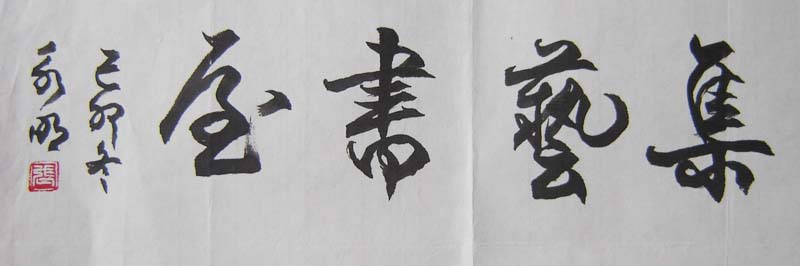 集藝書屋
己卯冬
永明
張